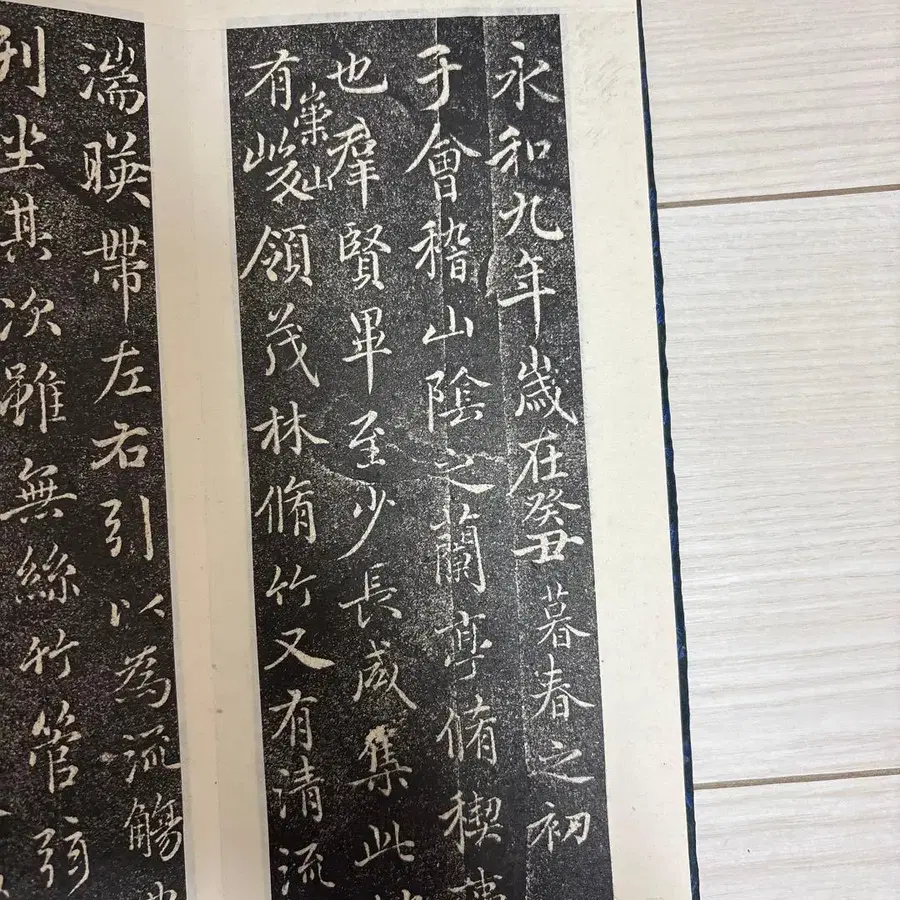 永和九年歲在癸丑暮春之初
于會稽山陰之蘭亭脩禊
也羣賢畢至少長咸集此
有崇山峻領茂林脩竹又有清流
湍暎帶左右引以為流觴
列坐其次雖無絲竹管弦